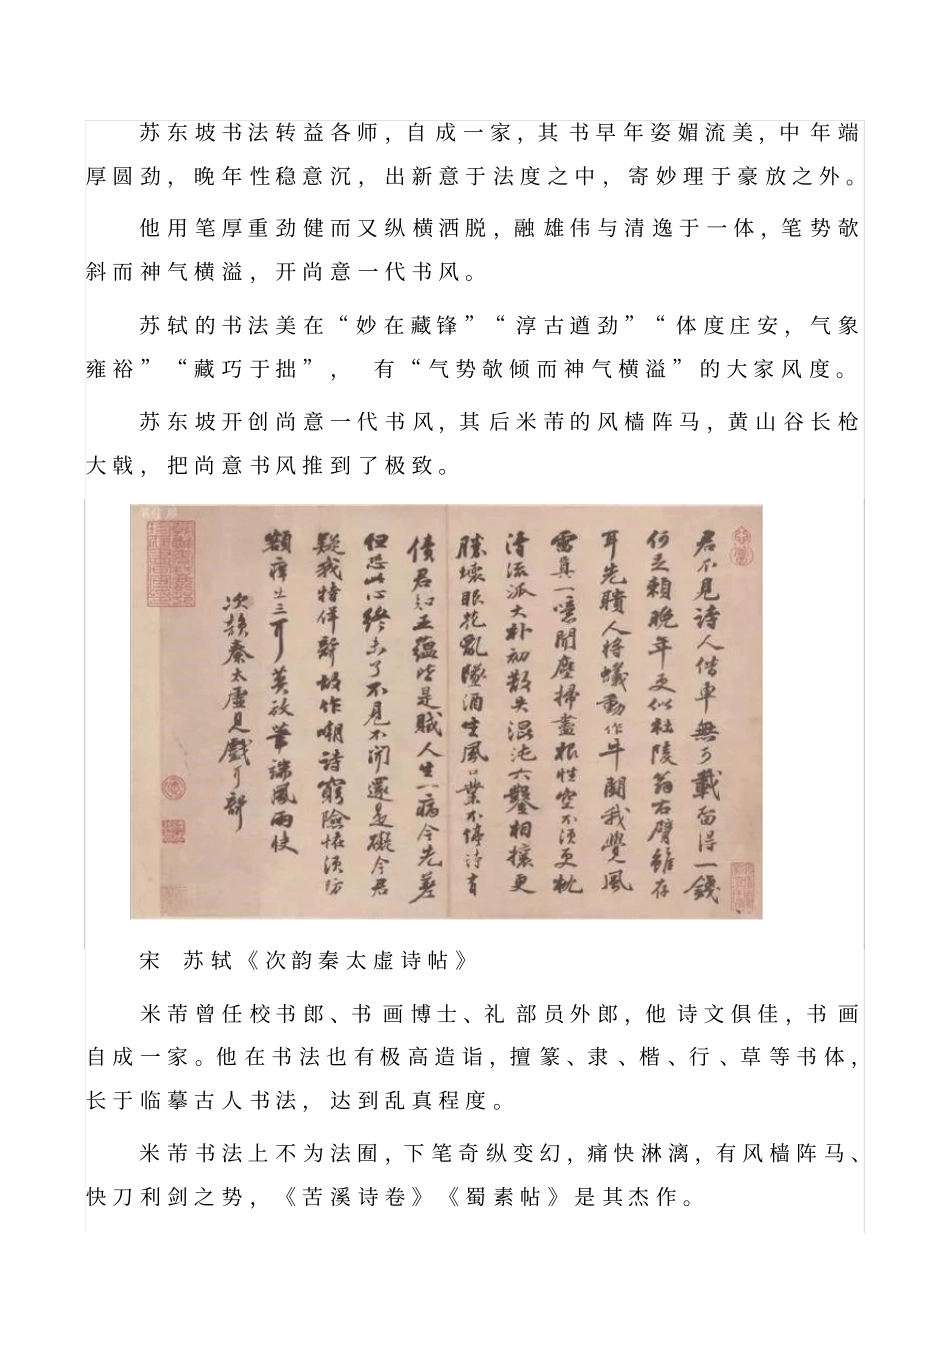 苏东坡书法转益各师，自成一家，其书早年姿媚流美，中年端
厚圆劲，晚年性稳意沉，出新意于法度之中，寄妙理于豪放之外。
他用笔厚重劲健而又纵横洒脱，融雄伟与清逸于一体，笔势欹
斜而神气横溢，开尚意一代书风。
苏轼的书法美在“妙在藏锋”“淳古遒劲”“体度庄安，气象
雍裕”“藏巧于拙”， 有“气势欹倾而神气横溢”的大家风度。
苏东坡开创尚意一代书风，其后米芾的风樯阵马，黄山谷长枪
大戟，把尚意书风推到了极致。
君不見詩人借車無可載留得一錢
何足賴晚年更似杜陵翁右臂雖存
耳先聵人將蟻動作牛鬪我覺風
雷真一噫聞塵掃盡根性空不須更枕
清流派大朴初散失混沌六鑿相攘更
勝壞眼花亂墜酒生風口業不停詩有
債君知五蘊皆是賊人生一病今先差
但恐此心終未了不見不聞還是礙今君
疑我特佯聾故作嘲詩窮險怪須防
額癢出三耳莫放筆端風雨快
次韻秦太虛見戲耳聾
宋 苏轼《次韵秦太虚诗帖》
米芾曾任校书郎、书画博士、礼部员外郎，他诗文俱佳，书画
自成一家。他在书法也有极高造诣，擅篆、隶、楷、行、草等书体，
长于临摹古人书法， 达到乱真程度。
米芾书法上不为法囿，下笔奇纵变幻，痛快淋漓，有风樯阵马、
快刀利剑之势，《苕溪诗卷》《蜀素帖》是其杰作。